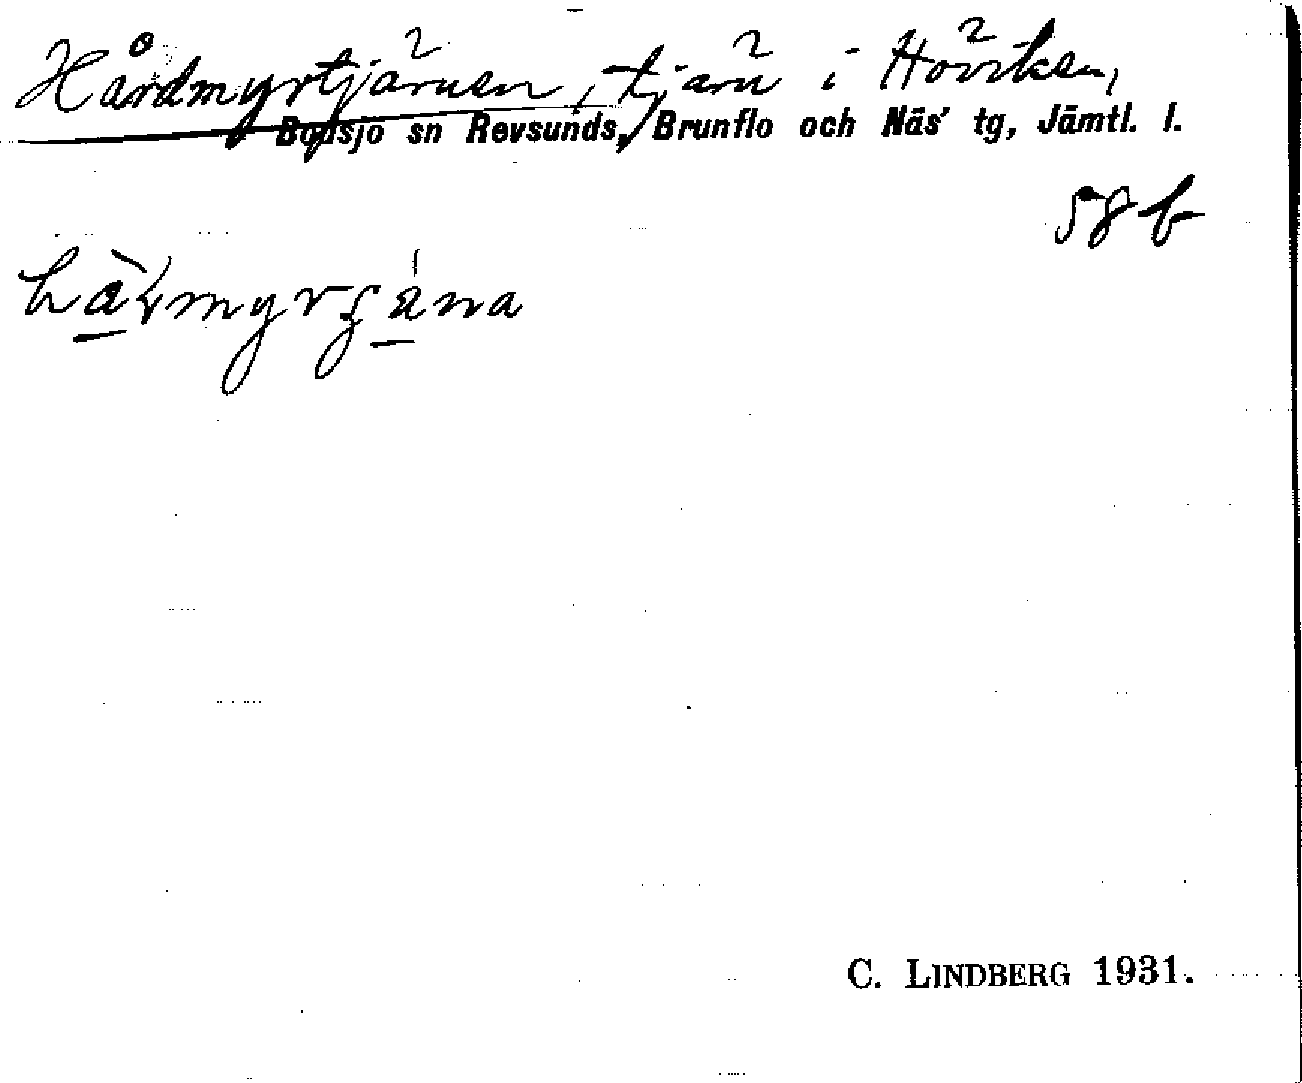 Hårdmyrtjärnen, tjärn i Höviken,
Bodsjö sn Revsunds, Brunflo och Näs' tg, Jämtl. l.
58 b
C. LINDBERG 1931.